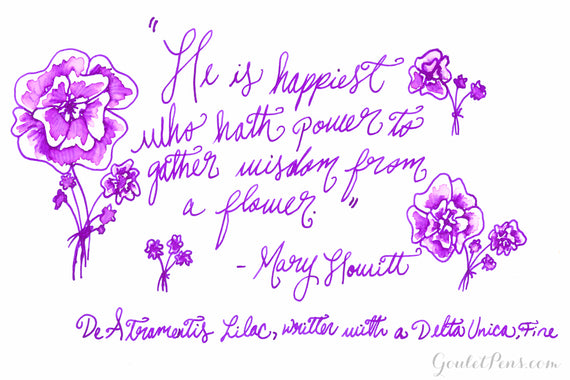 "He is happiest
who hath power to
gather wisdom from
a flower."
- Mary Howitt
De Atramentis Lilac, written with a Delta Unica, Fine
GouletPens.com